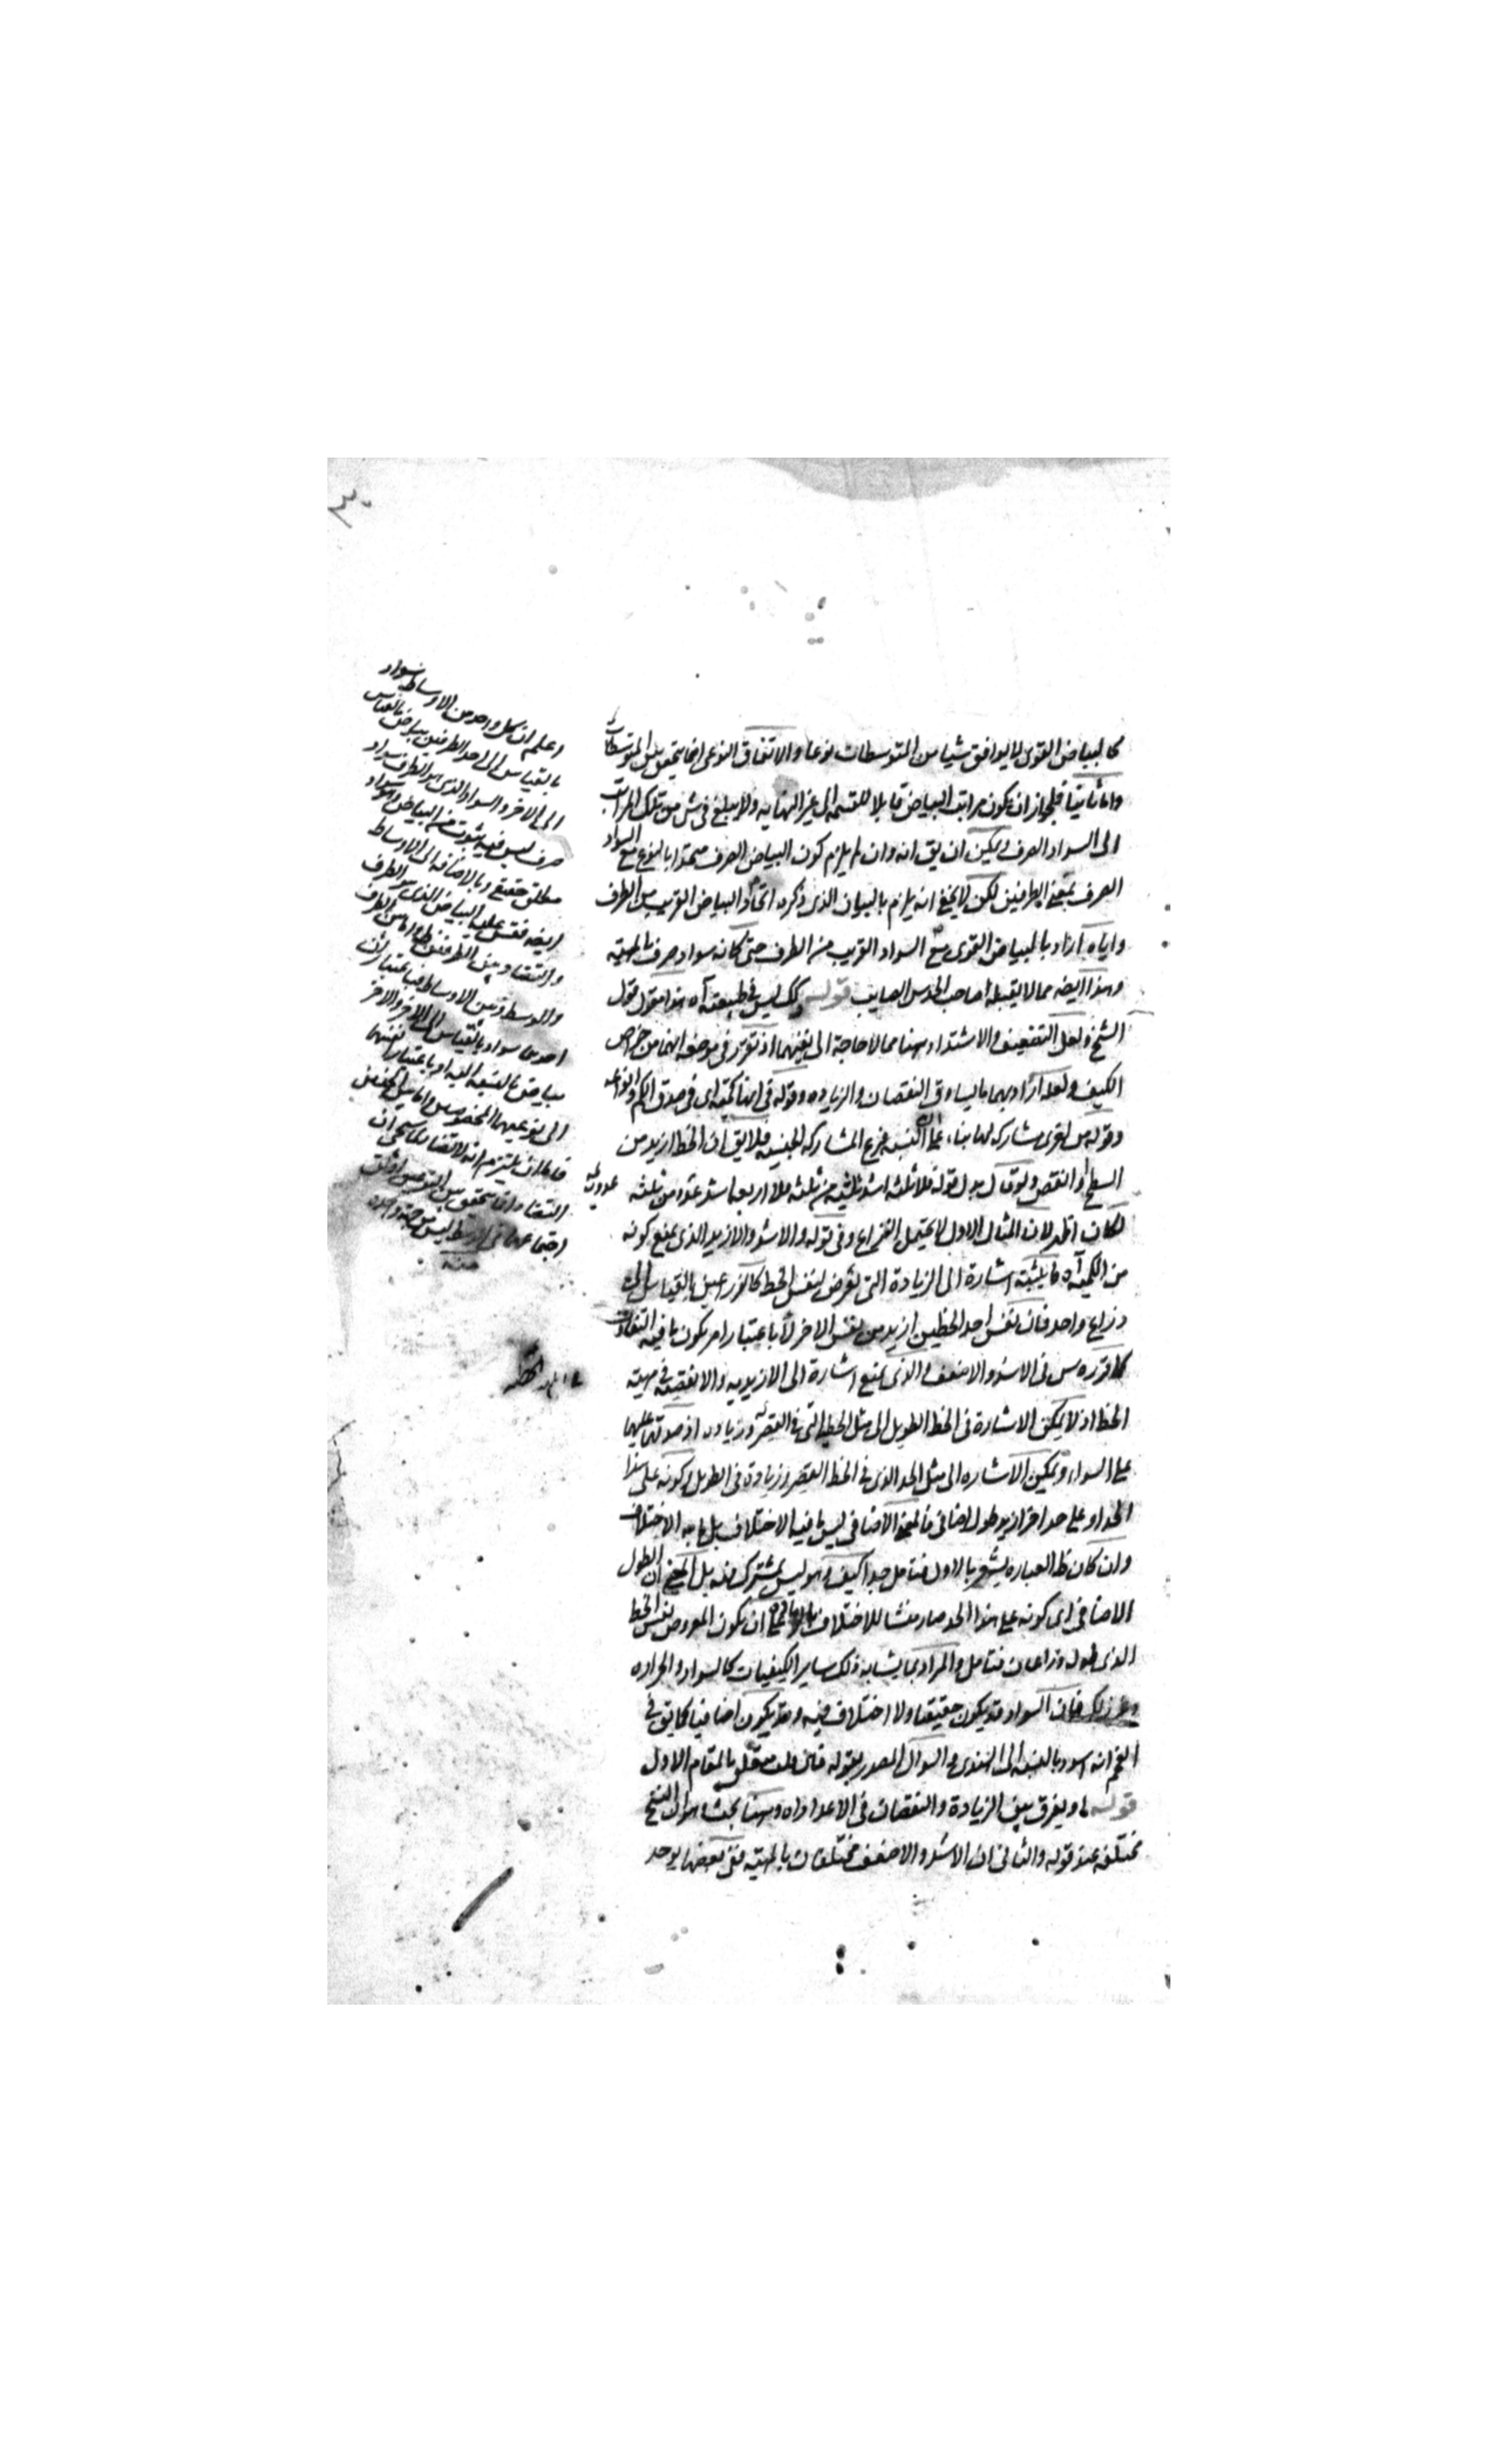 كالبياض القوى لا يوافق شيا من المتوسطات نوعا والاتفاق النوعى انما يتحقق بين المتوسطات
واما ثانيا فلجواز ان يكون مراتب البياض قابلا للقسمه الى غير النهايه ولا يبلغ فى شى من تلك المراتب
الى السواد الصرف ويمكن ان يق انه وان لم يلزم كون البياض الصرف متحدا بالنوع مع السواد
الصرف بمعنى الطرفين لكن لا يخفى انه يلزم بالبيان الذى ذكره اتحاد البياض القريب من الطرف
واياه اراد بالبياض القوى مع السواد القريب من الطرف حتى كانه سواد صرف بالمهية
وهذا ايضه مما لا يقبله صاحب الحدس الصايب قوله وكك ليس فى طبيعته آه هذا منقول قول
الشيخ ولعل التضعيف والاشتداد ههنا مما لا حاجة الى نفيهما اذ تقرر فى موضعه انهما من خواص
الكيف ولعله اراد بهما ما يساوق النقصان والزياده وقوله فى انها كمية اى فى صدق الكم
وقوله من اخرى مشاركه لها بناء على ان النسبه فرع المشاركه الجنسيه فلا يق ان الخط ازيد من
السطح او انقص ولو قال بدل قوله فلا ثلثه اشد ثلثيه من ثلثه فلا اربعه اشد عدديه من ثلثه
لكان اظهر لان المثال الاول لا يحتمل النزاع وفى قوله والاشد والازيد الذى يمنع كونه
من الكميه آه فايشبه اشارة الى الزيادة التى تعرض لنفس الخط كالذراعين بالقياس الى
ذراع واحد فان نفس احد الخطين ازيد من نفس الاخر لا باعتبار امر يكون ما فيه التفاوت
كما قرره س فى الاشد والاضعف والذى يمنع اشارة الى الازيديه والانقصيه فى مهية
الخط اذ لا يمكن الاشارة فى الخط الطويل الى مثل الخطيه التى فى القصير وزيادة اذ صدقها عليهما
على السواء ويمكن الاشاره الى مثل الحد الذى فى الخط القصير وزيادة فى الطويل وكونه على هذا
الحد او على حد اخر ازيد طول اضافى فالمعنى الاضافى ليس ما فيه الاختلاف بل ما به الاختلاف
وان كان ظ العباره يشعر بالاول فتامل جدا كيف وهو ليس بمشترك فيه بل المعنى ان الطول
الاضافى اى كونه على هذا الحد صار منشا للاختلاف ان يكون المعروض لنفس الخط
الذى طوله ذراعان فتامل والمراد بما يشابه ذلك ساير الكيفيات كالسواد والحراره
وغير ذلك فان السواد قد يكون حقيقيا ولا اختلاف فيه وقد يكون اضافيا كما يق فى
الفحم انه اسود بالنسبه الى الهندى والسوال المصدر بقوله فان قلت متعلق بالمقام الاول
قوله او يفرق بين الزيادة والنقصان فى الاعداد اه وههنا بحث
مختلفه عند قوله والثانى ان الاشد والاضعف مختلفان بالمهية ففى بعضها يوجد
اعلم ان كل واحد من الاوساط سواد
بالقياس الى احد الطرفين بياض بالقياس
الى الاخر والسواد الذى هو الطرف سواد
صرف ليس فيه شوب من البياض وسواد
مطلق حقيقى وبالاضافه الى الاوساط
ايضه فقس عليه البياض الذى هو الطرف
والتضاد بين الطرفين ظ واما بين الطرف
والوسط وبين الاوساط فباعتبار ان
احدهما سواد بالقياس الى الاخر والاخر
بياض بالنسبه اليه او باعتبار نفسهما
الى نوعيهما المخصوص
فاما ان يلتزم انه لا تضاد
التضاد انما يتحقق بين
اجتماعهما فى الوسط ليس من جهة واحده
منه